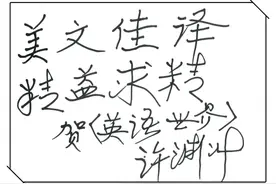 美文佳译
精益求精
贺《英语世界》
许渊冲